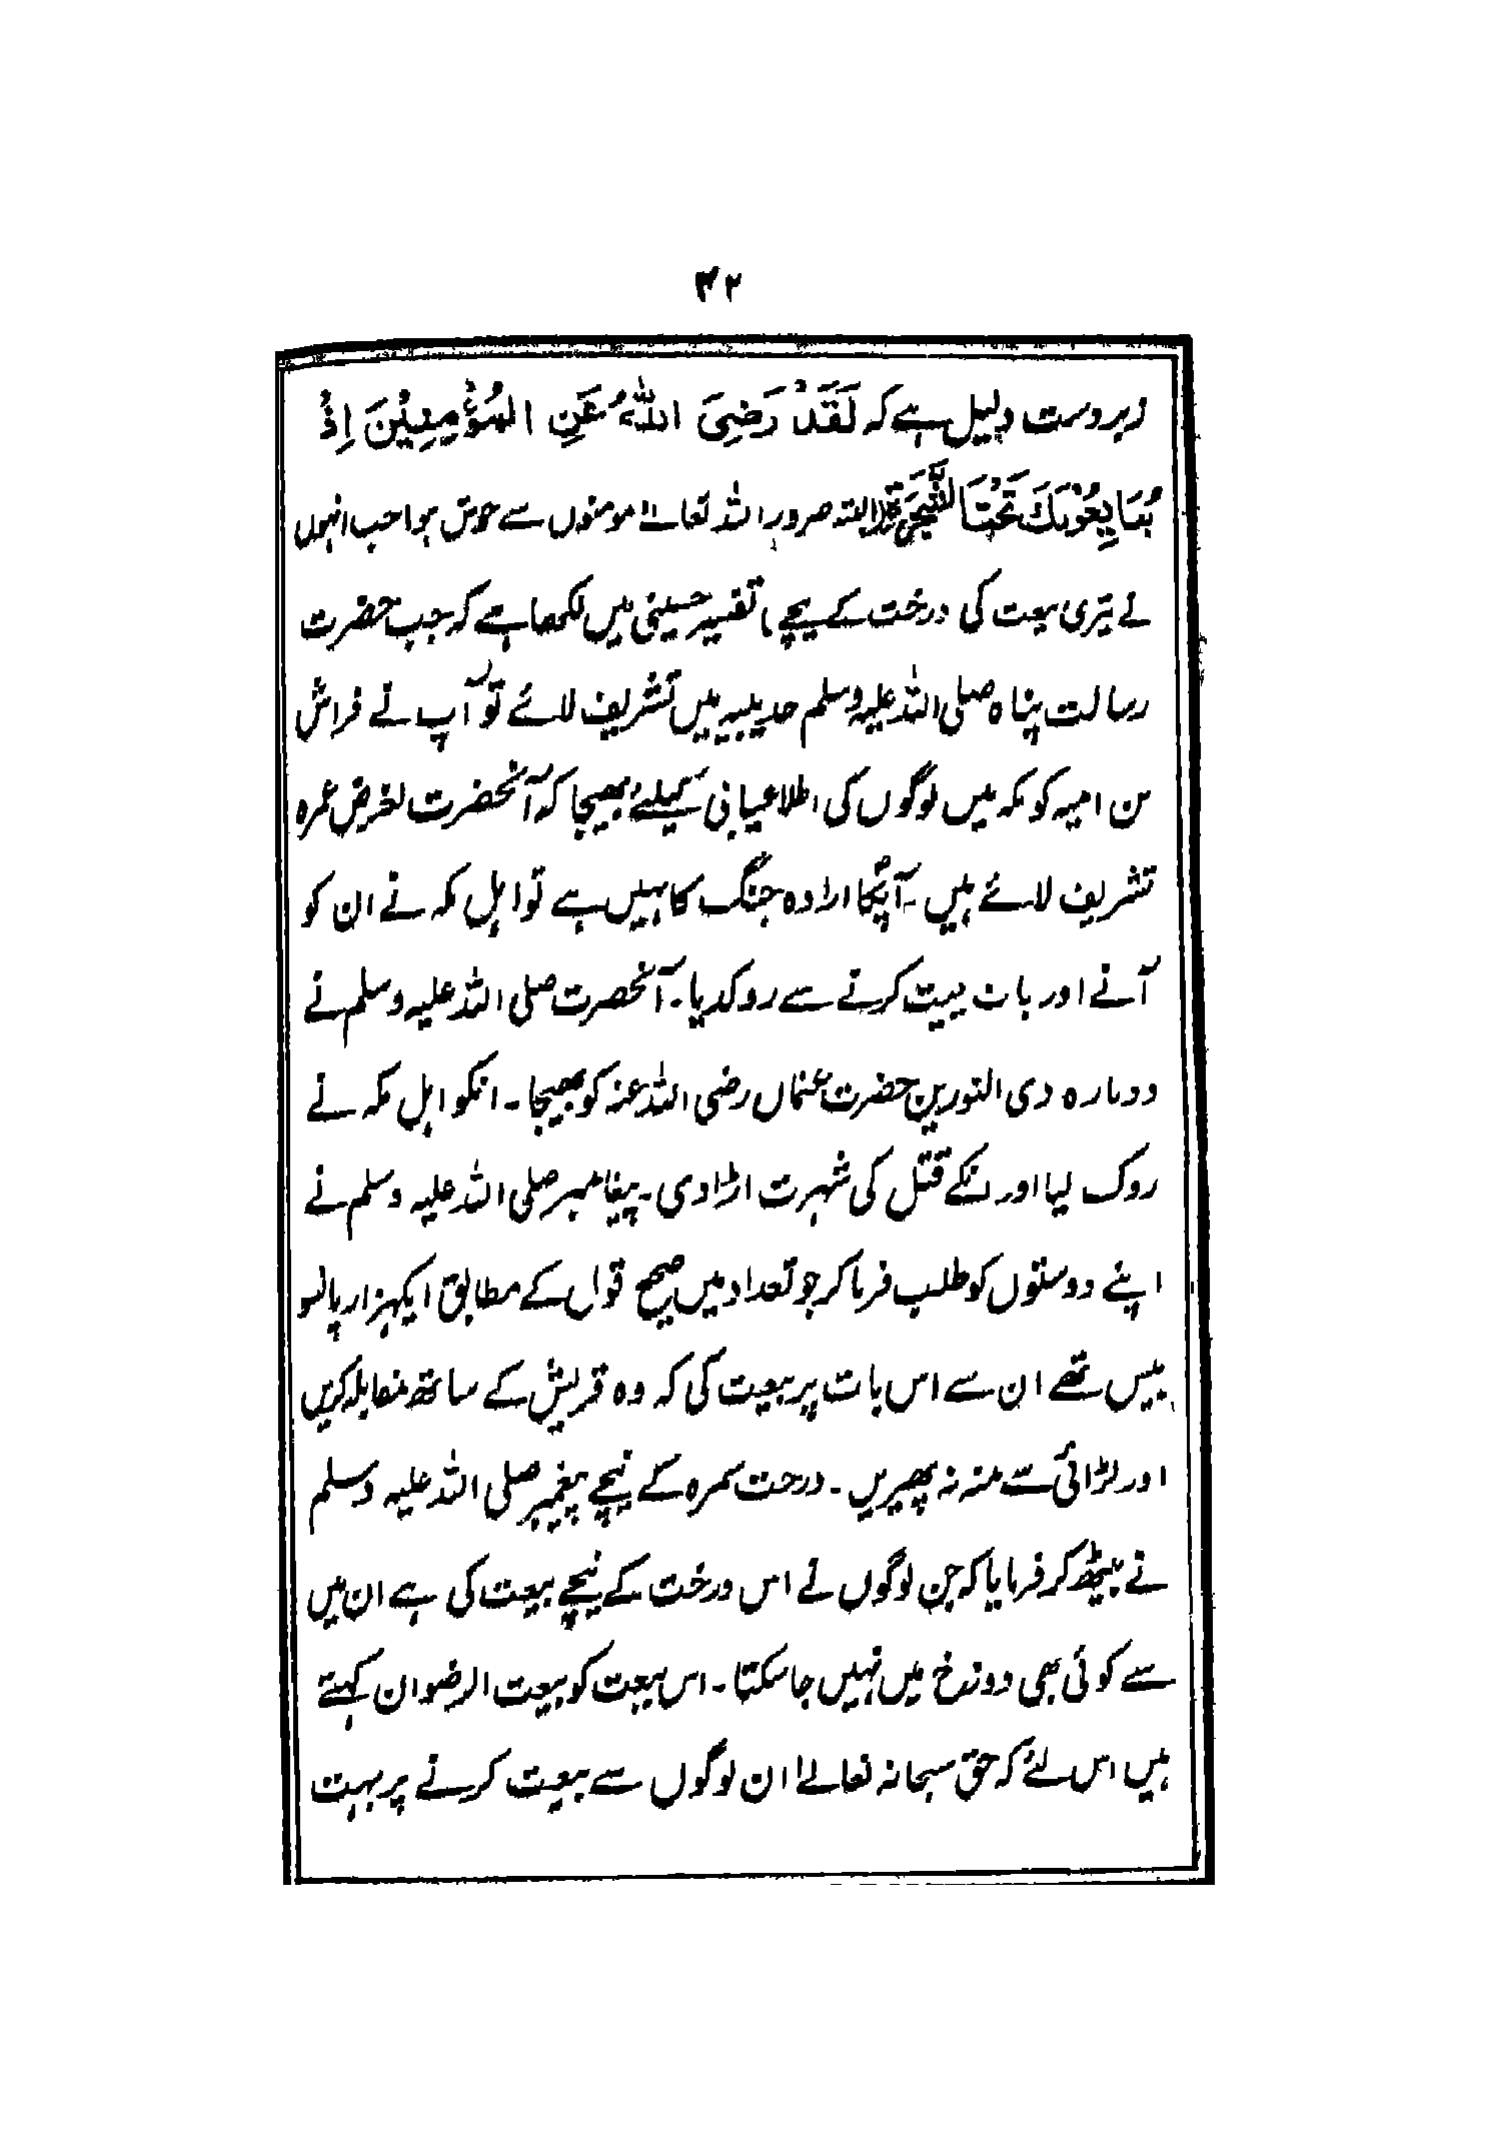 ۴۲
زبردست دلیل ہے کہ لَقَدْ رَضِیَ اللّٰهُ عَنِ الْمُؤْمِنِیْنَ اِذْ
یُبَایِعُوْنَكَ تَحْتَ الشَّجَرَةِ البتہ ضرور اللہ تعالےٰ مومنوں سے خوش ہوا جب انہوں
نے تیری بیعت کی درخت کے نیچے۔ تفسیر حسینی میں لکھا ہے کہ جب حضرت
رسالت پناہ صلی اللہ علیہ وسلم حدیبیہ میں تشریف لائے تو آپ نے خراش
بن امیہ کو مکہ میں لوگوں کی اطلاعیابی کیلئے بھیجا کہ آنحضرت لغرض عمرہ
تشریف لائے ہیں۔ آپؐ کا ارادہ جنگ کا نہیں ہے تو اہل مکہ نے ان کو
آنے اور بات چیت کرنے سے روکدیا۔ آنحضرت صلی اللہ علیہ وسلم نے
دوبارہ ذی النورین حضرت عثمان رضی اللہ عنہ کو بھیجا۔ انکو اہل مکہ نے
روک لیا اور انکے قتل کی شہرت اڑا دی۔ پیغامبر صلی اللہ علیہ وسلم نے
اپنے دوستوں کو طلب فرما کر جو تعداد میں صحیح قول کے مطابق ایکہزار پانسو
بیس تھے ان سے اس بات پر بیعت کی کہ وہ قریش کے ساتھ مقابلہ کریں
اور لڑائی سے منہ نہ پھیریں۔ درخت سمرہ کے نیچے پیغمبر صلی اللہ علیہ وسلم
نے بیٹھ کر فرمایا کہ جن لوگوں نے اس درخت کے نیچے بیعت کی ہے ان میں
سے کوئی بھی دوزخ میں نہیں جا سکتا۔ اس بیعت کو بیعت الرضوان کہتے
ہیں اس لئے کہ حق سبحانہ تعالےٰ ان لوگوں سے بیعت کرنے پر بہت